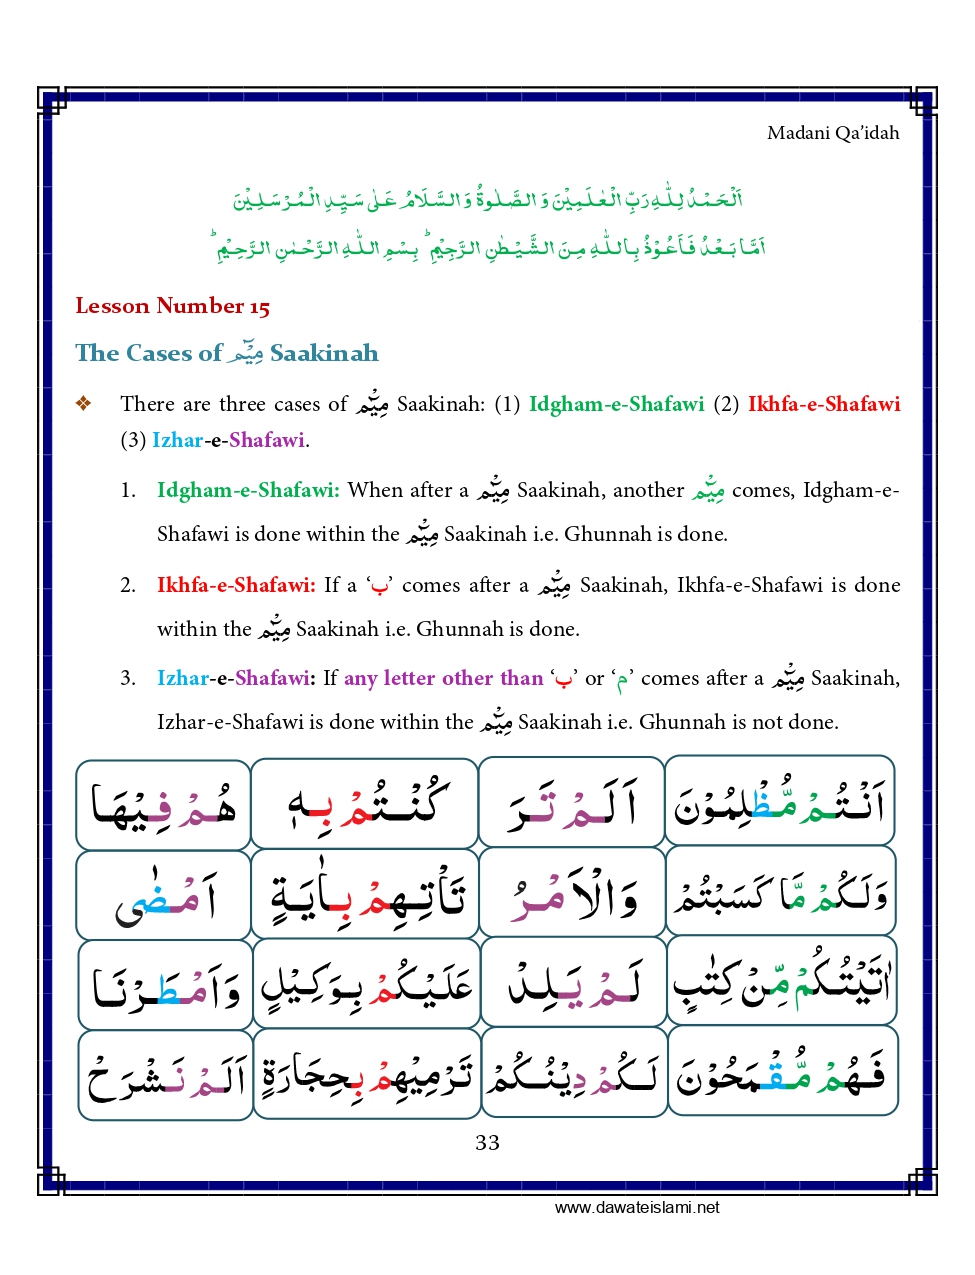 Madani Qa’idah
اَلْحَمْدُ لِلّٰهِ رَبِّ الْعٰلَمِيْنَ وَ الصَّلٰوةُ وَ السَّلَامُ عَلٰى سَيِّدِ الْمُرْسَلِيْنَ
اَمَّا بَعْدُ فَاَعُوْذُ بِاللّٰهِ مِنَ الشَّيْطٰنِ الرَّجِيْمِ ؕ بِسْمِ اللّٰهِ الرَّحْمٰنِ الرَّحِيْمِ ؕ
Lesson Number 15
The Cases of مِيْٓم Saakinah
❖ There are three cases of مِيْٓم Saakinah: (1) Idgham-e-Shafawi (2) Ikhfa-e-Shafawi
(3) Izhar-e-Shafawi.
1. Idgham-e-Shafawi: When after a مِيْٓم Saakinah, another مِيْٓم comes, Idgham-e-
Shafawi is done within the مِيْٓم Saakinah i.e. Ghunnah is done.
2. Ikhfa-e-Shafawi: If a ‘ب’ comes after a مِيْٓم Saakinah, Ikhfa-e-Shafawi is done
within the مِيْٓم Saakinah i.e. Ghunnah is done.
3. Izhar-e-Shafawi: If any letter other than ‘ب’ or ‘م’ comes after a مِيْٓم Saakinah,
Izhar-e-Shafawi is done within the مِيْٓم Saakinah i.e. Ghunnah is not done.
اَنْتُمْ مُّظْلِمُوْنَ اَلَمْ تَرَ كُنْتُمْ بِهٖ هُمْ فِيْهَا
وَلَكُمْ مَّا كَسَبْتُمْ وَالْاَمْرُ تَاْتِهِمْ بِاٰيَةٍ اَمْضٰى
اٰتَيْتُكُمْ مِّنْ كِتٰبٍ لَمْ يَلِدْ عَلَيْكُمْ بِوَكِيْلٍ وَاَمْطَرْنَا
فَهُمْ مُّقْمَحُوْنَ لَكُمْ دِيْنُكُمْ تَرْمِيْهِمْ بِحِجَارَةٍ اَلَمْ نَشْرَحْ
33
www.dawateislami.net